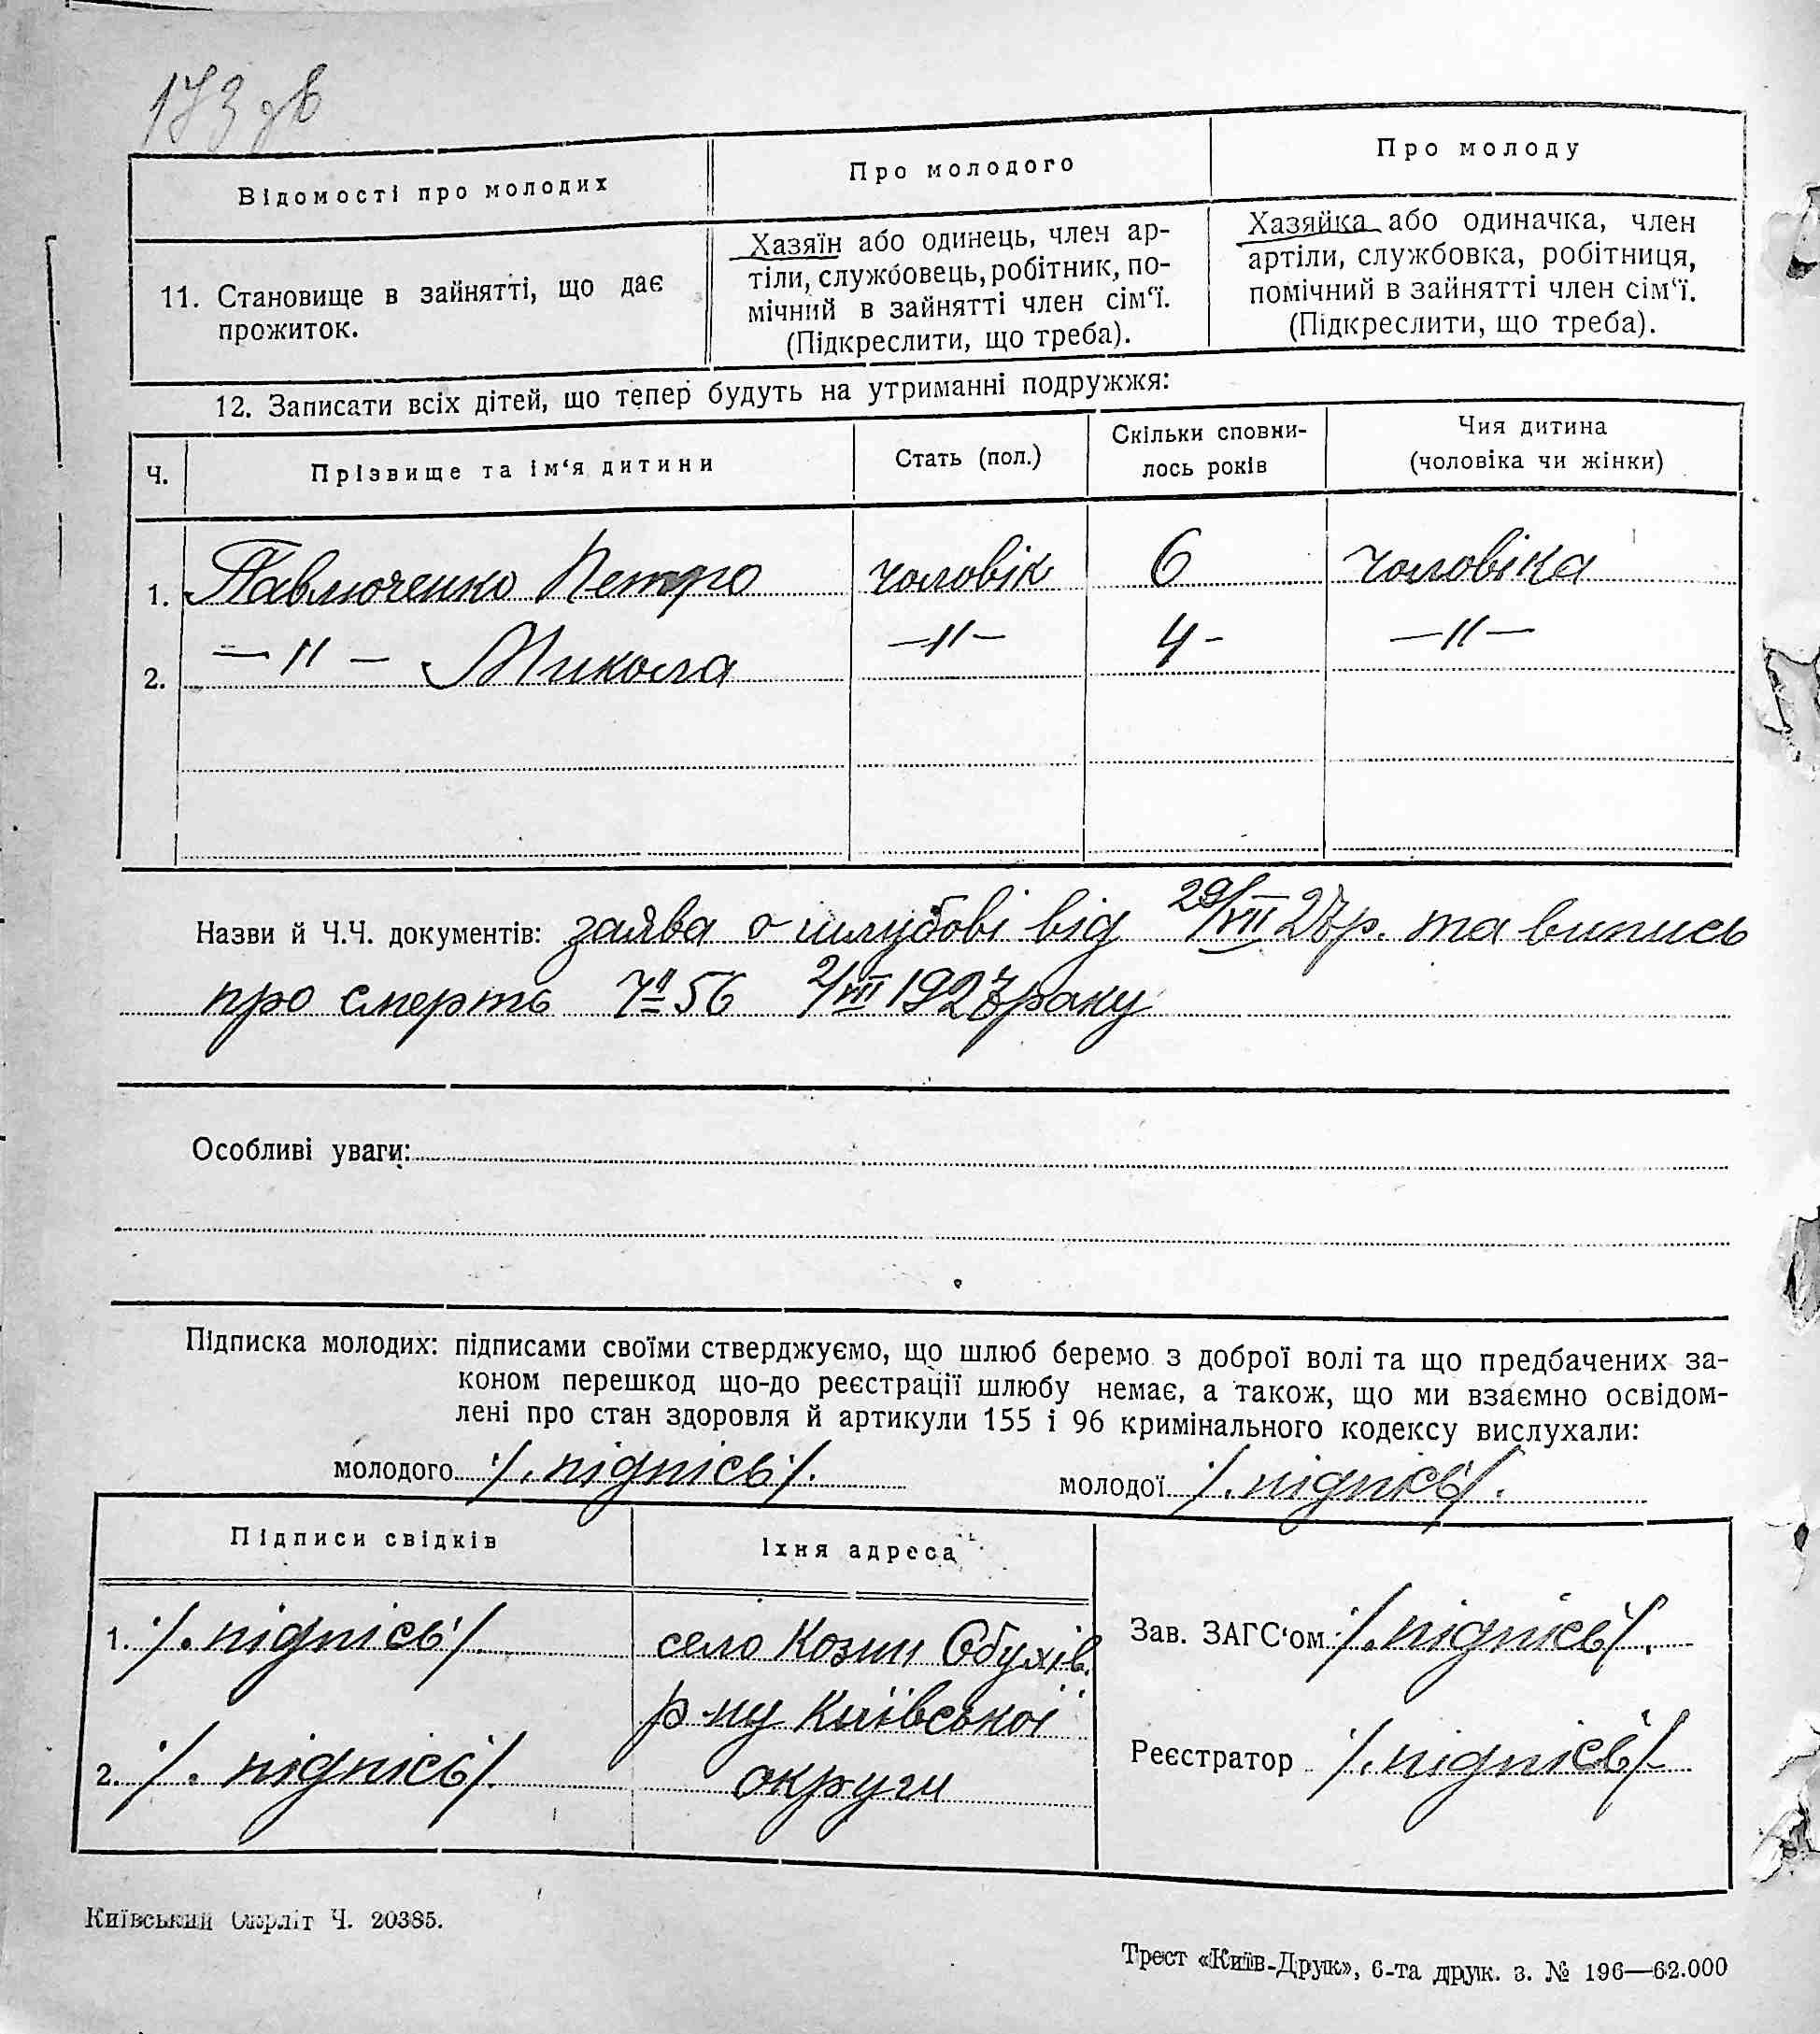 173 зв
Відомості про молодих
Про молодого
Про молоду
11. Становище в зайнятті, що дає
прожиток.
Хазяїн або одинець, член ар-
тіли, службовець, робітник, по-
мічний в зайнятті член сім‘ї.
(Підкреслити, що треба).
Хазяйка або одиначка, член
артіли, службовка, робітниця,
помічний в зайнятті член сім‘ї.
(Підкреслити, що треба).
12. Записати всіх дітей, що тепер будуть на утриманні подружжя:
Ч.
Прізвище та ім‘я дитини
Стать (пол.)
Скільки сповни-
лось років
Чия дитина
(чоловіка чи жінки)
1. Павлюченко Петро чоловік 6 чоловіка
2. —"— Микола —"— 4- —"—
Назви й Ч.Ч. документів: заява о шлубові від 29/VII 27р. та випись
про смерть Ч 56 2/VII 1927 року
Особливі уваги:
Підписка молодих: підписами своїми стверджуємо, що шлюб беремо з доброї волі та що предбачених за-
коном перешкод що-до реєстрації шлюбу немає, а також, що ми взаємно освідом-
лені про стан здоровля й артикули 155 і 96 кримінального кодексу вислухали:
молодого /. підпісь/. молодої /. підпісь/.
Підписи свідків
Їхня адреса
1. /. підпісь/.
село Козин Обухів.
р-ну Київської
2. /. підпісь/.
округи
Зав. ЗАГС‘ом /. підпісь/.
Реєстратор /. підпісь/.
Київський Окрліт Ч. 20385.
Трест «Київ-Друк», 6-та друк. з. № 196—62.000